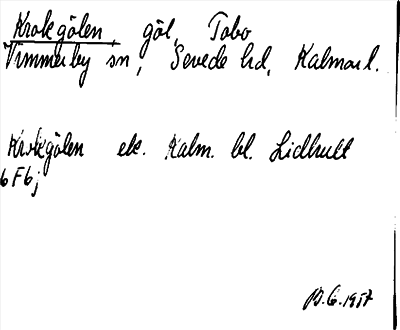 Krokgölen, göl, Tobo
Vimmerby sn, Sevede hd, Kalmar l.
Krokgölen ek. Kalm. bl. Lidhult
6Fb;
1957